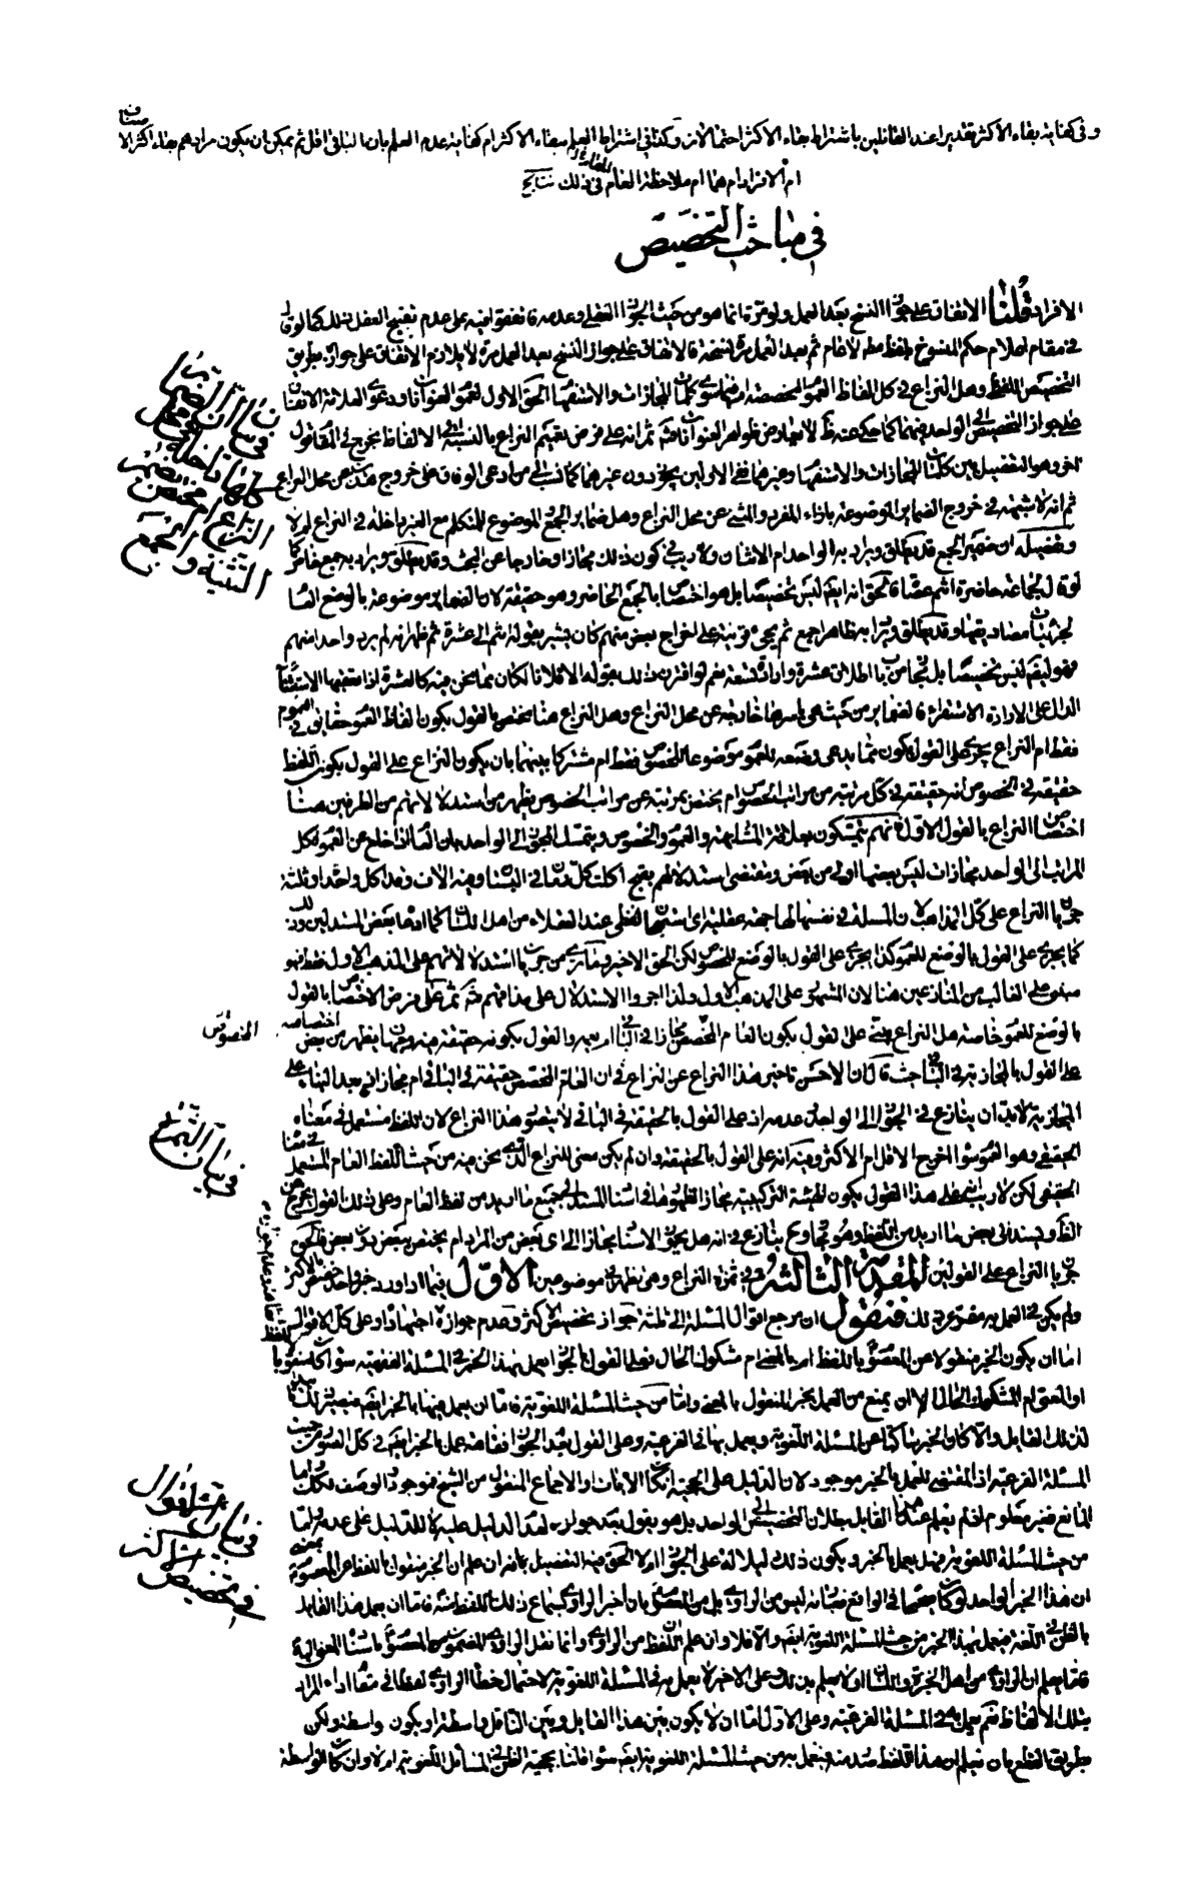 و في كفاية بقاء الاكثر تقديرا عند القائلين باشتراط بقاء الاكثر احتمالان و كذا في اشتراط العلم ببقاء الاكثر ام كفاية عدم العلم بان الباقي اقل ثم يمكن ان يكون مرادهم بقاء اكثر الاصناف
ام الافراد ام هما ام ملاحظة العام في ذلك نتايج
في مباحث التخصيص
الافراد قلنا الاتفاق على جواز النسخ بعد العمل ولو مرة انما هو من حيث الجواز العقلي و عدمه فاتفقوا فيه على عدم تقبيح العقل لذلك كما لو قال
في مقام اعلام حكم المنسوخ بلفظ عام ثم بعد العمل مرة نسخه فالاتفاق على جواز النسخ بعد العمل مرة لا يلازم الاتفاق على جوازه بطريق
التخصيص اللفظي وهل النزاع في كل الفاظ العموم المخصصة ام فيما سوى كلمات المجازات والاستفهام الحق الاول لعموم العنوانات ودعوى العلامة الاتفاق
على جواز التخصيص الى الواحد فيهما كما حكي عنه لا يعارض ظواهر العنوانات ثم انه على فرض تعميم النزاع بالنسبة الى الالفاظ يخرج في المقام قول
اخر وهو التفصيل بين كلمات المجازات والاستفهام وغيرهما ففي الاولين يجوز دون غيرهما كما نسب الى من ادعى الوفاق على خروج عن محل النزاع
ثم انه لا شبهة في خروج الضمائر الموضوعة بازاء المفرد والمثنى عن محل النزاع وهل ضمائر الجمع الموضوع للمتكلم مع الغير داخلة في النزاع ام لا
و تفصيله ان ضمير الجمع قد يطلق ويراد به الواحد ام الاثنان ولا ريب في كون ذلك مجازا و خارجا عن البحث وقد يطلق ويراد به جمع خاص كما
لو قال لجماعة حاضرة انتم عصاة فالحق انه ايضا ليس تخصيصا بل هو اختصاص بالجمع الحاضر وهو حقيقة لان الضمائر موضوعة بالوضع العام
لجزئيات مصاديقها وقد يطلق ويراد به ظاهرا جمع ثم يجيء قرينة على اخراج بعض منهم كان يشير بقوله انتم الى عشرة ثم ظهر انه لم يرد واحدا منهم
فهو ايضا ليس تخصيصا بل مجاز من باب اطلاق عشرة وارادة تسعة نعم لو اقترن ذلك بقوله الا فلانا لكان مما نحن فيه كالعشرة اذا تعقبها الاستثناء
الدال على الارادة الاستقراء فالضمائر من حيث هي باسرها خارجة عن محل النزاع وهل النزاع هنا مختص بالقول بكون الفاظ العموم حقائق في العموم
فقط ام النزاع يجري على القول بكون ما يدعى وضعه للعموم موضوعا للخصوص فقط ام مشتركا بينهما بان يكون النزاع على القول بكون اللفظ
حقيقة في الخصوص انه حقيقة في كل مرتبة من مراتب الخصوص ام يختص بمرتبة من مراتب الخصوص يظهر من استدلالاتهم من الطرفين هنا
اختصاص النزاع بالقول الاول فانهم يتمسكون بعلاقة المشابهة والعموم والخصوص ويتمسك المجوز الى الواحد بان العام اذا خرج عن العموم فكل
المراتب الى الواحد مجازات ليس بعضها اولى من بعض ومقتضى استدلالهم بقبح اكلت كل رمانة في البستان وفيه الاف وقد اكل واحدة او ثلثة
جريان النزاع على كل المذاهب لان المسئلة في نفسها لها جهة عقلية اي استهجان اللفظ عند العقلاء من اهل اللسان كما ادعاه بعض المستدلين وذلك
كما يجري على القول بالوضع للعموم كذا يجري على القول بالوضع للخصوص لكن الحق الاخير وما ترى من جريان الاستدلالاتهم على المذهب الاول فقط فهو
مبني على الغالب من المنازعين هنا لان المشهور على المذهب الاول ولذا اجروا الاستدلال على مذاقهم ثم على فرض الاختصاص بالقول
بالوضع للعموم خاصة هل النزاع مبتنى على القول بكون العام المخصص مجازا في الباقي ام يعمه والقول بكونه حقيقة فيه وجهان يظهر من بعض اختصاصه
الخصوص
على القول بالمجازية في الباحث قال ان الاحسن تاخير هذا النزاع عن النزاع في ان العام المخصص حقيقة في الباقي ام مجاز اذ بعد البناء على
المجازية لا بد ان يتنازع في الجواز الى الواحد وعدمه اذ على القول بالحقيقة في الباقي لا يتصور هذا النزاع لان اللفظ مستعمل في معناه
الحقيقي وهو العموم سواء اخرج الاقل ام الاكثر وفيه انه على القول بالحقيقة وان لم يكن معنى للنزاع الذي نحن فيه من حيث اللفظ العام المستعمل في معناه
الحقيقي لكن لا ريب على هذا القول بكون الهيئة التركيبية مجازا لظهورها في اسناد المسند الى جميع ما اريد من لفظ العام وعلى ذلك القول يخرج عن
الظاهر ويسند الى بعض ما اريد من اللفظ وهو مجاز وح يتنازع في انه هل يجوز الاسناد مجازا الى اي بعض من المراد ام يختص ببعض دون بعض فالحق
جريان النزاع على القولين المقدمة الثالثة في ثمرة النزاع وهي تظهر في موضوعين الاول فيما اذا ورد خبر واحد خصص بالاكثر
ولم يكن في العمل به مفر غير ذلك فنقول ان مرجع اقوال المسئلة الى ثلثة جواز تخصيص الاكثر وعدم جوازه اجتهادا وعلى كل الاقوال
اما ان يكون الخبر منقولا عن المعصوم باللفظ ام بالمعنى ام مشكوك الحال فعلى القول بالجواز يعمل بهذا الخبر في المسئلة الفقهية سواء كان منقولا باللفظ
او المعنى ام المشكوك الحال الا ان يمنع من العمل بخبر المنقول بالمعنى واما من حيث المسئلة اللغوية فاما ان يعمل فيها بالخبر ايضا فيصير ذلك
لذلك القائل والا كان الخبر ساكتا عن المسئلة اللغوية ويعمل بها في الفرعية وعلى القول بعدم الجواز اقتضاء عمل بالخبر ايضا في كل الصور من حيث
المسئلة الفرعية اذ المقتضي للعمل بالخبر موجود لان الدليل على الحجية انكان الايات والاجماع المنقول من الشيخ فموجود الوصف فكذلك واما
المانع فغير معلوم اذ لم يعلم عند هذا القائل بطلان التخصيص الى الواحد بل هو يقول بعدم جوازه لفقد الدليل عليه لا للدليل على عدمه واما
من حيث المسئلة اللغوية فهل يعمل بالخبر ويكون ذلك دليلا له على الجواز ام لا الحق فيه التفصيل بانه ان علم ان الخبر منقول باللفظ عن المعصوم بمعنى
ان هذا الخبر الواحد لو كان صدقا في الواقع فبيانه ليس من الراوي بل من المعصوم بان اخبر الراوي بسماع ذلك اللفظ منه فاما ان يعمل هذا القائل
بالظن في اللغة فيعمل بهذا الخبر من حيث المسئلة اللغوية ايضا والا فلا وان علم ان اللفظ من الراوي وانما نقل الراوي المضمون من المعصوم
فاما يعلم ان الراوي من اهل الخبرة واللسان او لا يعلم ذلك وعلى الاخير لا يعمل به في المسئلة اللغوية لاحتمال خطأ الراوي لفظا في مقام اداء المراد
بتلك الالفاظ نعم يعمل به في المسئلة الفرعية وعلى الاول اما ان لا يكون بين هذا القائل وبين الناقل واسطة او يكون واسطة ولكن
بطريق القطع بان يعلم ان هذا اللفظ صدر منه فيعمل به من حيث المسئلة اللغوية ايضا سواء قلنا بحجية الظن في المسائل اللغوية ام لا وان كان الواسطة
في بيان ان الضمائر
كلها داخلة في محل
النزاع ام مختص بضمير
التثنية والجمع
في بيان الثمرة
في بيان الاقوال
في تخصيص الاكثر